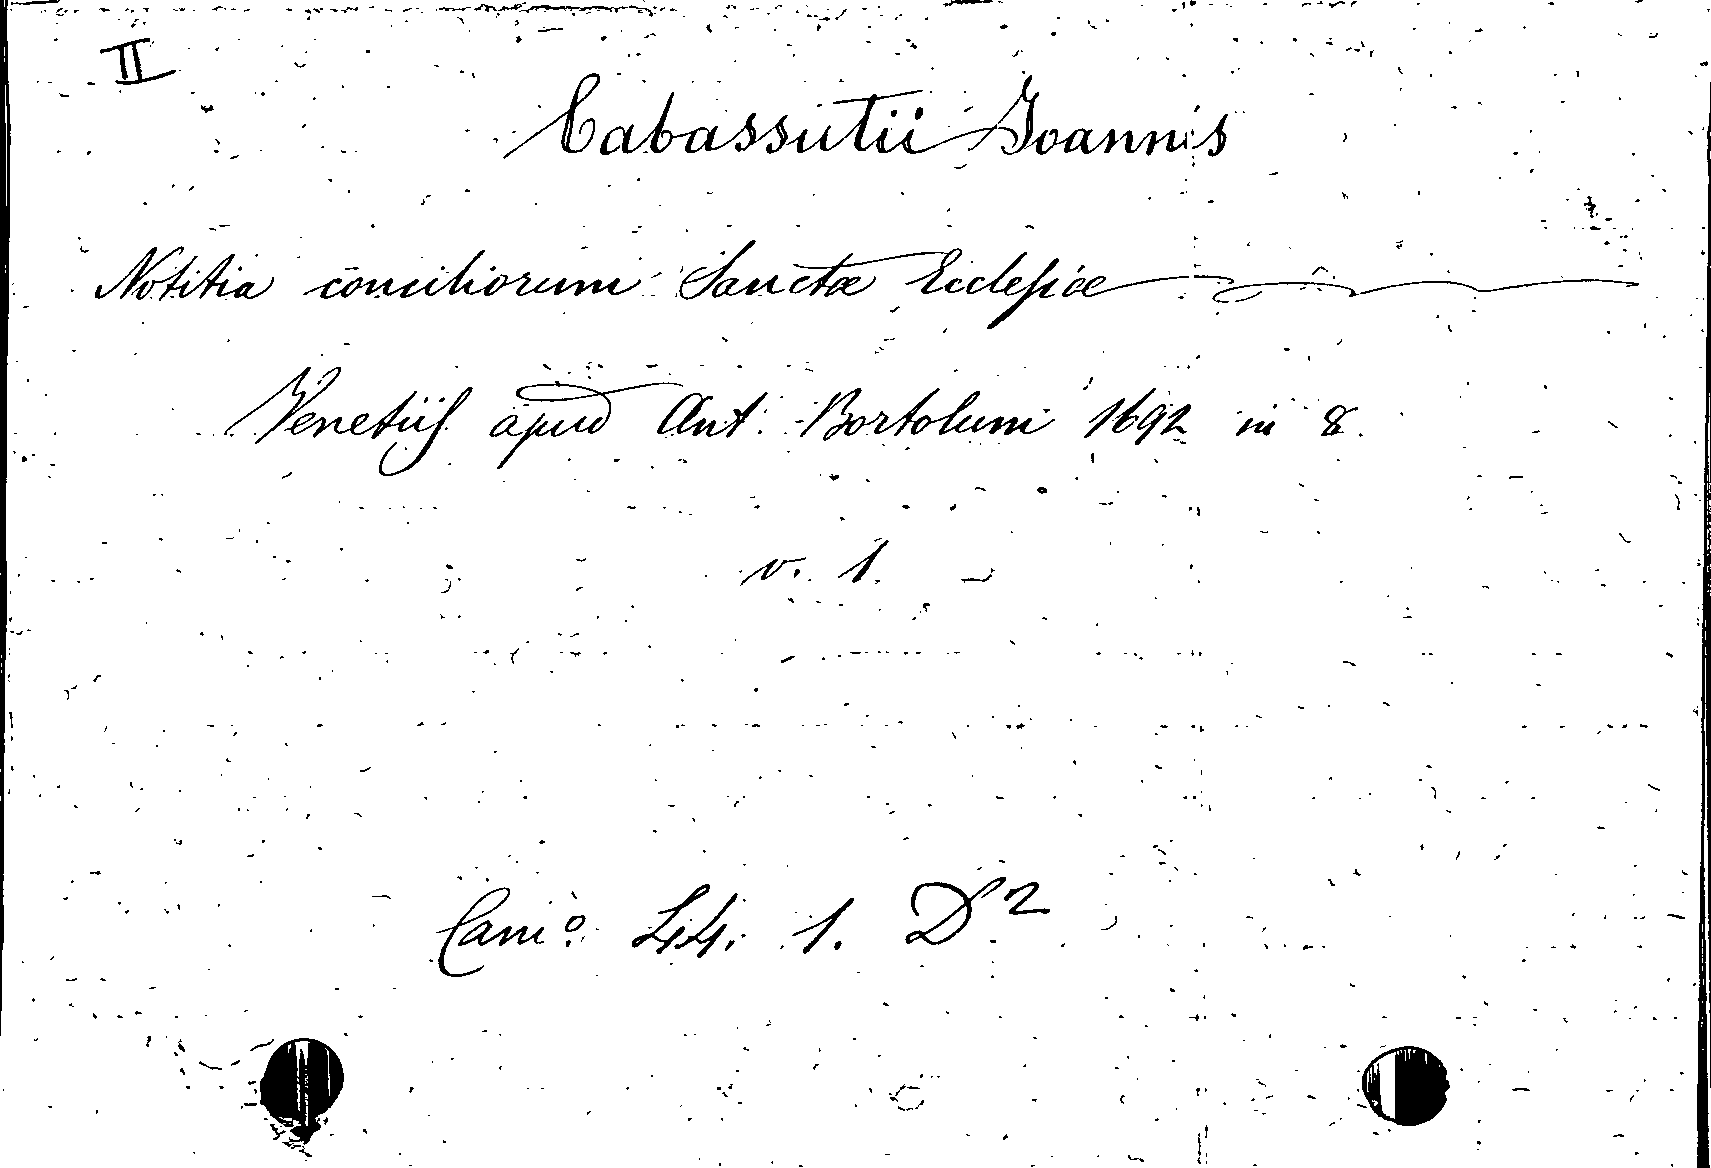 II
Cabassutii Joannis
Notitia conciliorum Sanctæ Ecclesiæ
Venetiis apud Ant. Bortolum 1692 in 8.
v. 1.
Cam.º 44. 1. D²